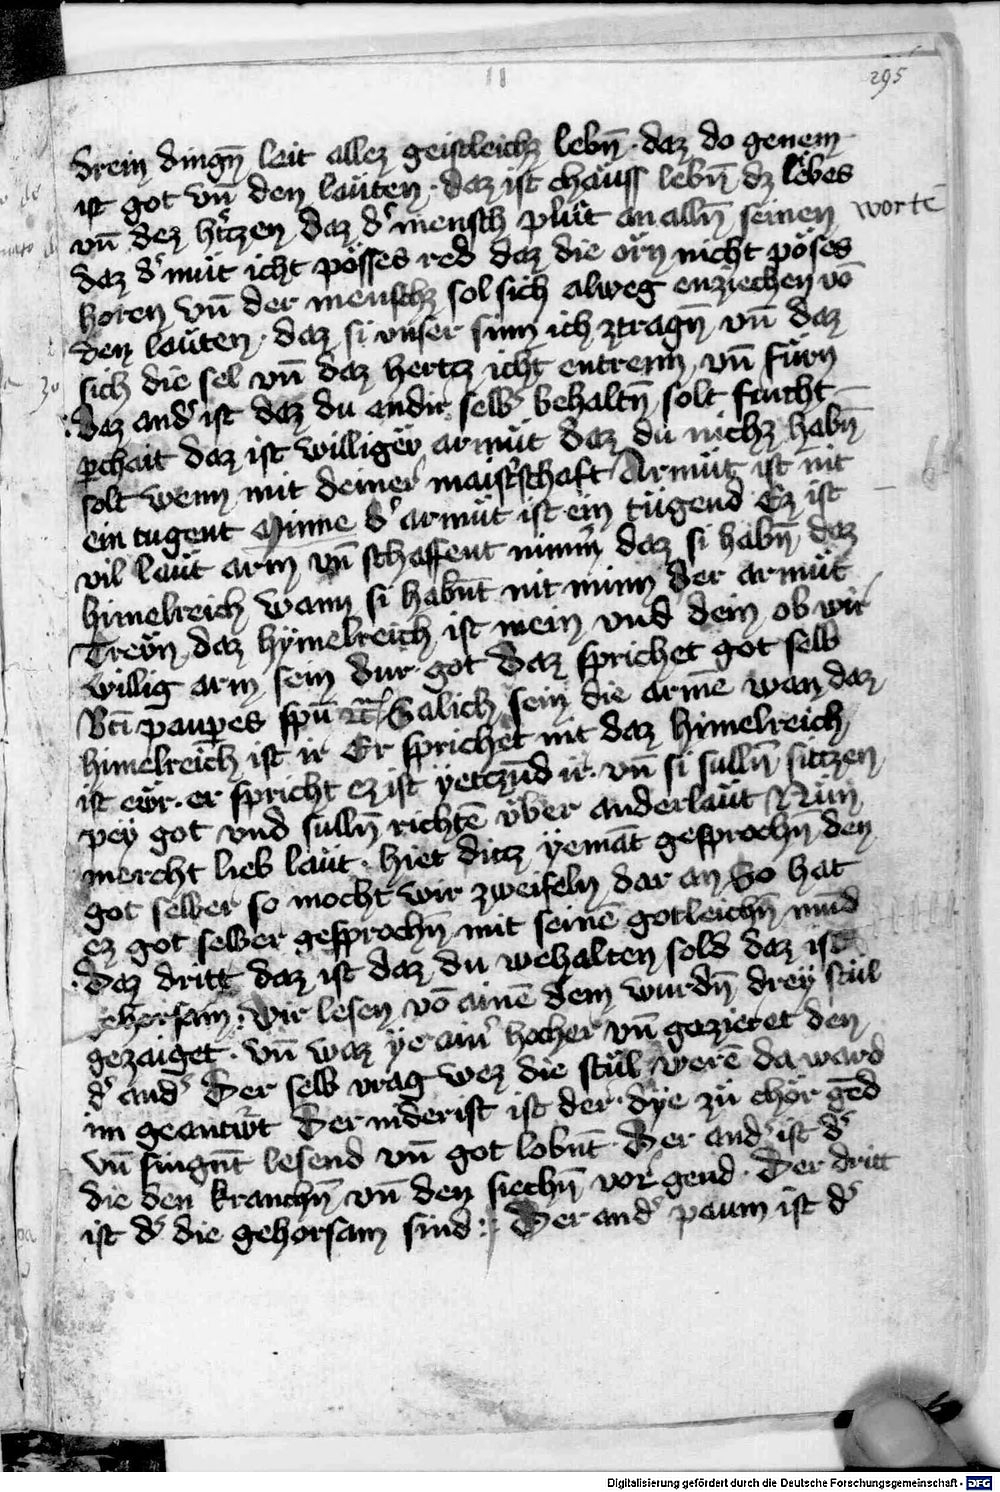 295
drein dingn̄ leit allez geistleichz lebn̄ · daz do genem
ist got vn̄ den laüten · daz ist chäuss lebn̄ dz lebes
vn̄ dez hertzen daz d' mensch plüt an alln̄ seinen wortē
daz d' müt icht pösses red daz die örn nicht pöses
horen vn̄ der menschz sol sich alweg enziechen vō
den laüten · daz si vnser sinn ich ztragn̄ vn̄ daz
sich die sel vn̄ daz hertz icht entrenn vn̄ fürn
Daz and' ist daz du an dir selb' behaltn̄ solt frücht
p̱chait daz ist williger armüt daz du nichz habn̄
solt wenn mit deiner maist'schaft Armüt ist nit
ein tugent Minne d' armüt ist ein tügend Ez ist
vil laüt arm vn̄ schaffent nimm' daz si habn̄ daz
himelreich wann si habn̄t nit minn der armüt
Treẅn daz hymelreich ist mein vnd dein ob wir
willig arm sein dur got Daz sprichet got selb
Bt̄i paup̱es spū rc̄ Salich sein die armē wan daz
himelreich ist ir Er sprichet nit daz himelreich
ist ewr · er spricht ez ist yetczūd ir · vn̄ si sulln̄ sitzen
pey got vnd sulln̄ richtē vber anderlaüt Nun
mercht lieb laüt · hiet ditz yemāt gesprochn̄ den
got selber so mocht wir zweifeln dar an So hat
ez got selber gesprochn̄ mit seinē gotleichn̄ mūd
Daz dritt daz ist daz du wehalten sold daz ist
gehorsam : Wir lesen vō ainē dem wurdn̄ drey stül
gezaiget · vn̄ waz ye ain' hocher vn̄ gezieret den
d' and' Der selb vrag wez die stül werē da ward
im geantw't Der niderist ist der dye zü chör gēd
vn̄ singn̄t lesend vn̄ got lobn̄t · Der and' ist d'
die den kranchn̄ vn̄ den siechn̄ vor gend · Der dritt
ist d' die gehorsam sind : Der and' paum ist d'
Digitalisierung gefördert durch die Deutsche Forschungsgemeinschaft - DFG